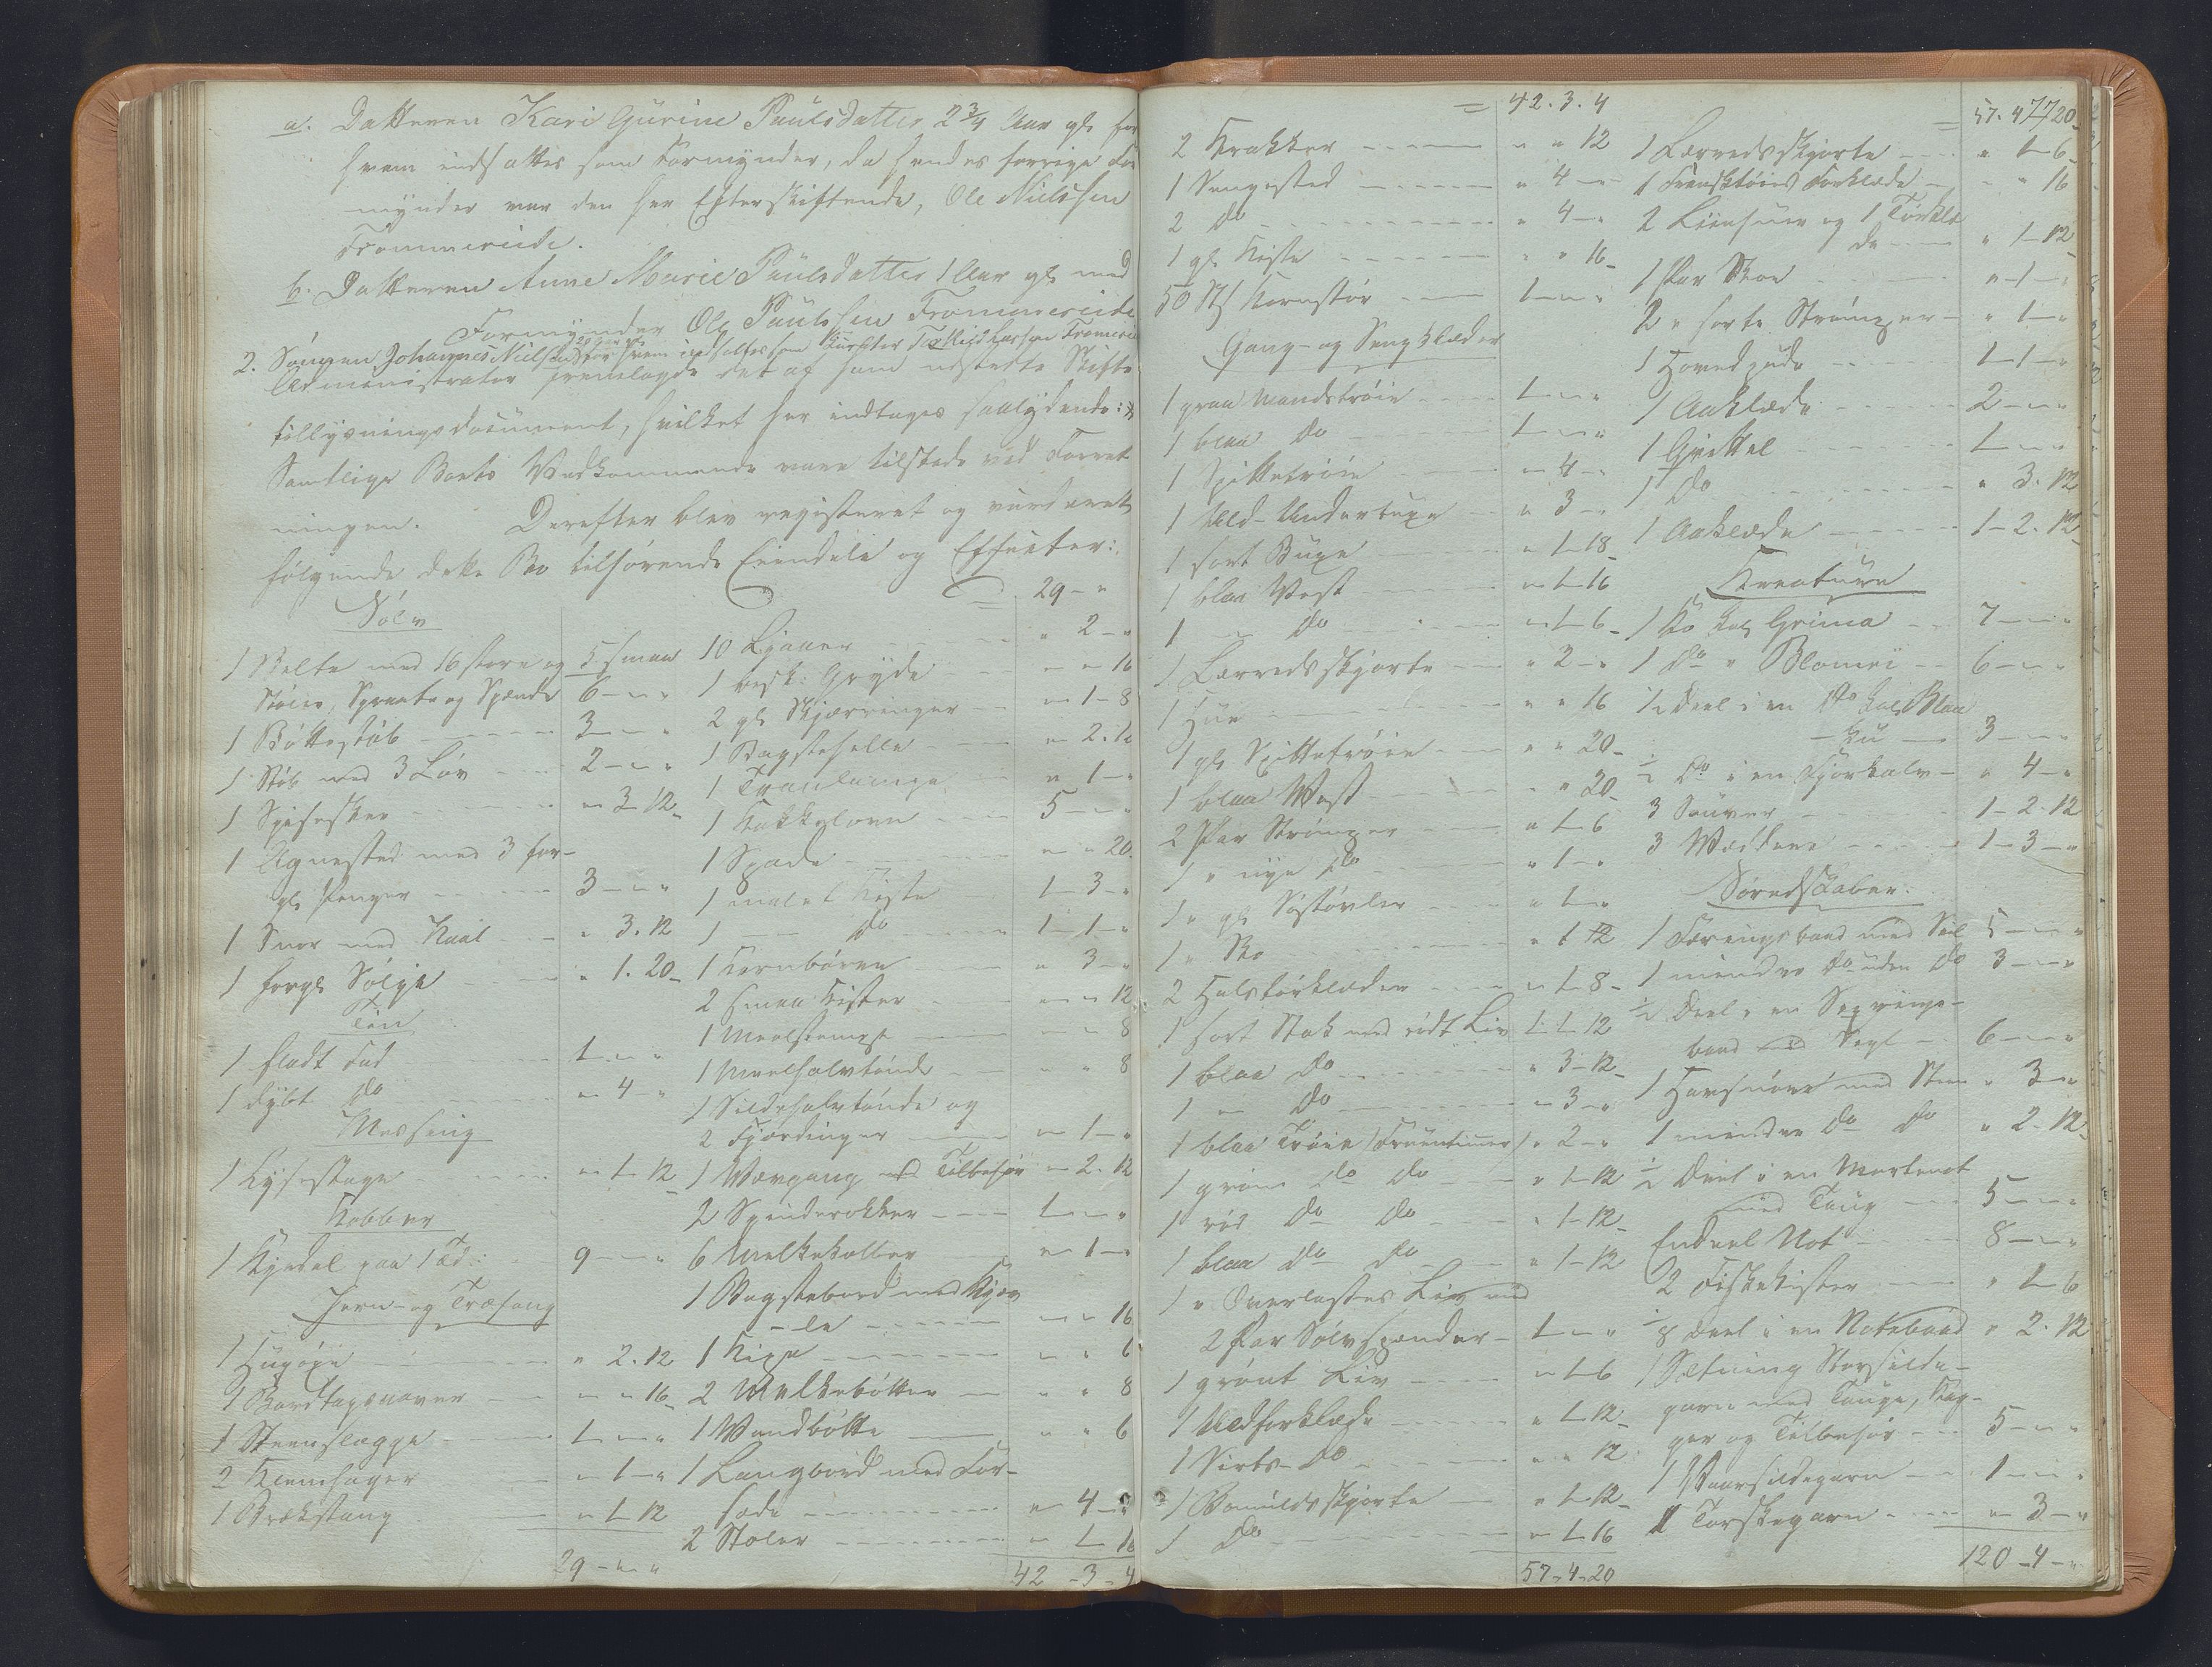 a. Datteren Kari Gurine Paulsdatter 2 3/4 Aar gl. for
hvem indsattes som Formynder, da hendes forrige For
mynder var den her Efterskiftende, Ole Nielssen
Frommereide.
b. Datteren Anne Marie Paulsdatter 1 Aar gl. med
Formynder Ole Paulssen Frommereide
2. Sønnen Johannes Nielssen 20 Aar gl. for hvem indsattes som Kurator Larssen Fromereide
Administrator fremlagde det af ham udstedte Skifte
tillysningsdocument, hvilket her indtages saalydende:
Samtlige Boets Vedkommende vare tilstede ved Forret
ningen. Derefter blev registreret og vurderet
følgende dette Bo tilhørende Eiendele og Effecter:
Sølv
1 Belte med 16 store og 5 smaa
Støler, Sprette og Spænde 6 - " "
1 Bøttestøb 3 - " "
1 Støb med 3 Løv 2 - " "
1 Spiseskee " 3 - 12
1 Agnested med 3 for-
gl. Penger 3 - " "
1 Snor med Naal " 3. 12
1 forgl. Sølje " 1. 20
Tin
1 fladt Fad 1 - " "
1 dybt do " 4 - "
Messing
1 Lysestage " 1 - 12
Kobber
1 Kjedel paa 1 Td: 9 - " "
Jern- og Træfang
1 Hugøxe " 2. 12
1 Bordtagsnaver " " 16
1 Steenslægge 1 - " "
2 Steenhager " 1 - "
1 Brækstang " 1 - 12
29 - " "
29 - "
10 Ljaaer " 2 - "
1 besk: Gryde " " 16
2 gl. Skjæreringer " 1 - 8
1 Bagstehelle " 2. 12
1 Tranlampe " 1 - "
1 Kakkelovn 5 - " "
1 Spade " " 20
1 malet Kiste 1 - 3 - "
1 — do 1 - 1 - "
1 Kornbøren " 3 - "
2 smaa Kister " " 12
1 Meelstampe " " 8
1 Meelhalvtønde " " 8
1 Sildehalvtønde og
2 Fjærdinger " 1 - "
1 Vævgang med Tilbehør " 2. 12
2 Spinderokker 1 - " "
6 Melkekoller " 1 - "
1 Bagstebord med Kjæv
- le " " 16
1 Kipe " " 6
2 Melkebøtter " " 8
1 Vandbøtte " " 6
1 Langbord med For-
sæde " 4 - "
2 Stoler " 1 - 16
42 - 3 - 4
= 42. 3. 4
2 Krakker " " 12
1 Sengested " 4 - "
2 do " 4 - "
1 gl. Kiste " " 16
50 Stk. Kornstør 1 - " "
Gang- og Sengklæder
1 graa Mandstrøie 1 - " "
1 blaa do 1 - " "
1 Spittetrøie " 4 - "
1 Uld-Underbuxe " 3 - "
1 sort Buxe " 1 - 18
1 blaa Vest " 1 - 16
1 — do " 1 - 6
1 Lærredsskjorte " 2 - "
1 Hue " " 16
1 gl. Spittetrøie " " 20
1 blaa Vest " " 20
2 Par Strømper " 1 - 6
1 " nye do " 1 - "
1 " gl. Søstøvler " 1 - "
1 " Sko " 1 12
2 Halstørklæder " 1 - 8
1 sort Stak med rødt Liv 1 - 1 - 12
1 blaa do " 3 - 12
1 — do " 3 - "
1 blaa Trøie (Fruentimmer) " 2 - "
1 grøn do do " 1 - 12
1 rød do do " 1 - 12
1 blaa do do " 1 - 12
1 " Overlastes Liv med
2 Par Sølvspænder 1 - " "
1 grønt Liv " 1 - 6
1 Uldforklæde " 1 - 12
1 Sirts-do " " 12
1 Bomuldsskjorte " 1 - 12
1 do " 1 - 16
57 - 4 - 20
= 57. 4 20
1 Lærredsskjorte " 1 - 6
1 Fransktøies Forklæde " " 16
2 Linhuer og 1 Tørklæ
de " 1 - 12
1 Par Skoe " 1 - "
2 " sorte Strømper " 1 - "
1 Hovedpude 1 - 1 - "
1 Aaklæde 2 - " "
1 Grittel 1 - " "
1 do " 3. 12
1 Aaklæde 1 - 2. 12
Kreature
1 Ko kal. Grima 7 - " "
1 do " Blomei 6 - " "
1/2 Deel i en do kal. Blaa
- ku 3 - " "
1/2 do i en Fjorkalv " 4 - "
3 Sauer 1 - 2. 12
3 Vædere 1 - 3 - "
Søredskaber.
1 Færingsbaad med Seil 5 - " "
1 mindre do uden do 3 - " "
1/2 Deel i en Sexrings-
baad med Segl 6 - " "
1 Havsnøre med Steen " 3 - "
1 mindre do do " 2. 12
1/2 Deel i en Mortenot
med Taug 5 - " "
Endeel Not 8 - " "
2 Fiskekister " 1 - 6
1/8 Deel i en Notebaad " 2. 12
1 Sætning Storsilde-
garn med Tauge, Kag-
ger og Tilbehør 5 - " "
1 Vaarsildegarn 1 - " "
1 Torskegarn " 3 - "
120 - 4 - "